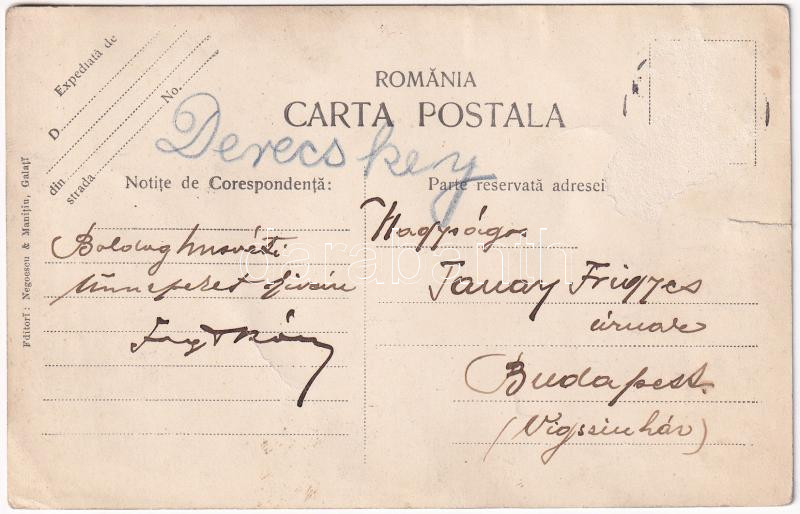 Expediată de
D
No.
din
strada
ROMĂNIA
CARTA POSTALA
Derecskey
Notițe de Corespondență:
Parte reservată adresei
Boldog húsvéti
ünnepeket kíván
Nagyságos
Tanay Frigyes
úrnak
Budapest.
(Vigszinház)
Editorĭ: Negoescu & Manițiu, Galațĭ
darabanth